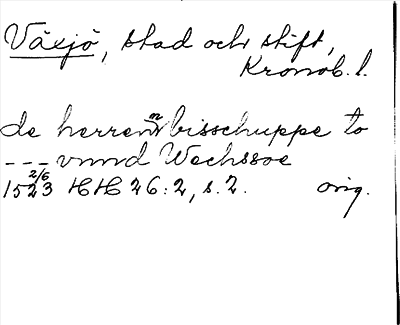 Växjö, stad och stift,
Kronob. l.
de herrenn bisschuppe to
--- vnnd Wechssoe
1523 2/6 HH 26:2, s. 2. orig.